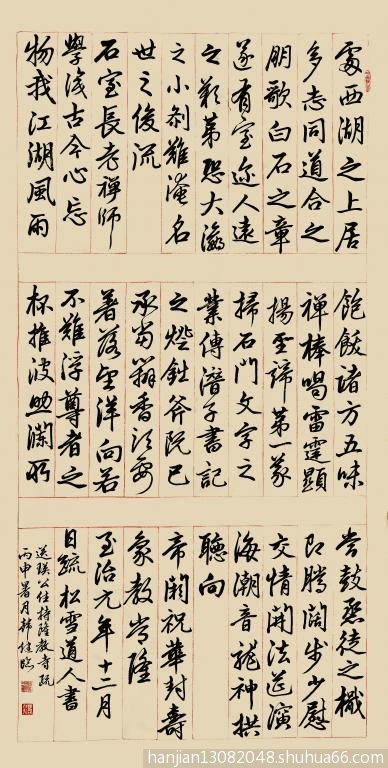 處西湖之上居
多志同道合之
朋歌白石之章
遂有室迩人遠
之歎第恐大瀛
之小剎難淹名
世之俊流
石室長老禪師
學識古今心忘
物我江湖風雨
飽飫諸方五味
禪棒喝雷霆顯
揚聖諦第一義
掃石門文字之
業傳潛子書記
之燈鈯斧既已
承當箬香須要
著落望洋向若
不難浮尊者之
杯推波助瀾所
當鼓烝徒之檝
即騰闊步少慰
交情開法筵演
海潮音龍神拱
聽向
帝闕祝華封壽
象教常隆
至治元年十二月
日疏松雪道人書
送瑛公住持隆教寺疏
丙申暑月韓健臨
hanjian13082048.shuhua66.com